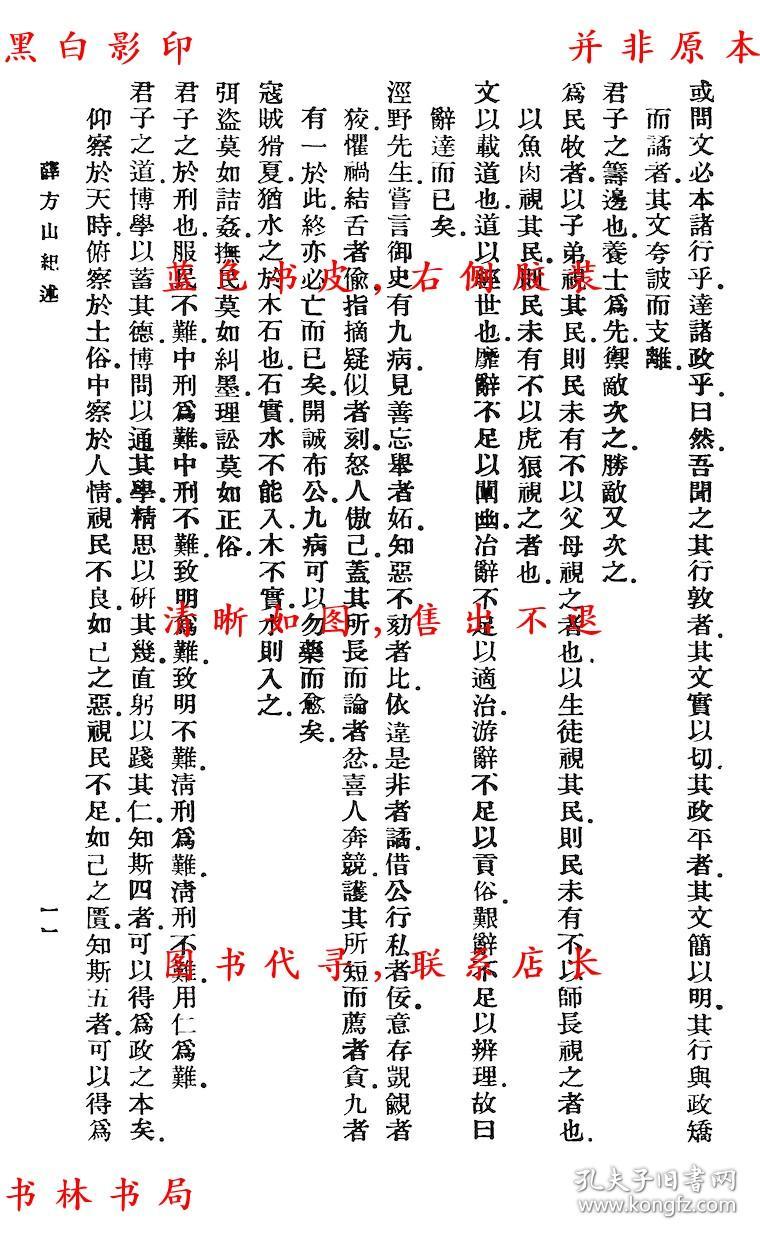 黑白影印
并非原本
或問文必本諸行乎達諸政乎曰然吾聞之其行敦者其文實以切其政平者其文簡以明其行與政矯
而譎者其文夸誠而支離
君子之籌邊也養士爲先禦敵次之勝敵又次之
爲民牧者以子弟視其民則民未有不以父母視之者也以生徒視其民則民未有不以師長視之者也
以魚肉視其民則民未有不以虎狼視之者也
文以載道也道以經世也靡辭不足以闡幽冶辭不足以適治游辭不足以貢俗艱辭不足以辨理故曰
辭達而已矣
涇野先生嘗言御史有九病見善忘舉者妬知惡不劾者比依違是非者譎借公行私者佞意存覬覦者
狡懼禍結舌者偷指摘疑似者刻怒人傲己蓋其所長而論者忿喜人奔競護其所短而薦者貪九者
有一於此終亦必亡而已矣開誠布公九病可以勿藥而愈矣
寇賊猾夏猶水之於木石也石實水不能入木不實水則入之
弭盜莫如詰姦撫民莫如糾墨理訟莫如正俗
君子之於刑也服民不難中刑爲難中刑不難致明爲難致明不難淸刑爲難淸刑不難用仁爲難
君子之道博學以蓄其德博問以通其學精思以硏其幾直躬以踐其仁知斯四者可以得爲政之本矣
仰察於天時俯察於土俗中察於人情視民不良如己之惡視民不足如己之匱知斯五者可以得爲
薛方山紀述
一一
蓝色书皮,右侧胶装
清晰如图,售出不退
图书代寻,联系店长
书林书局
孔夫子旧书网
www.kongfz.com